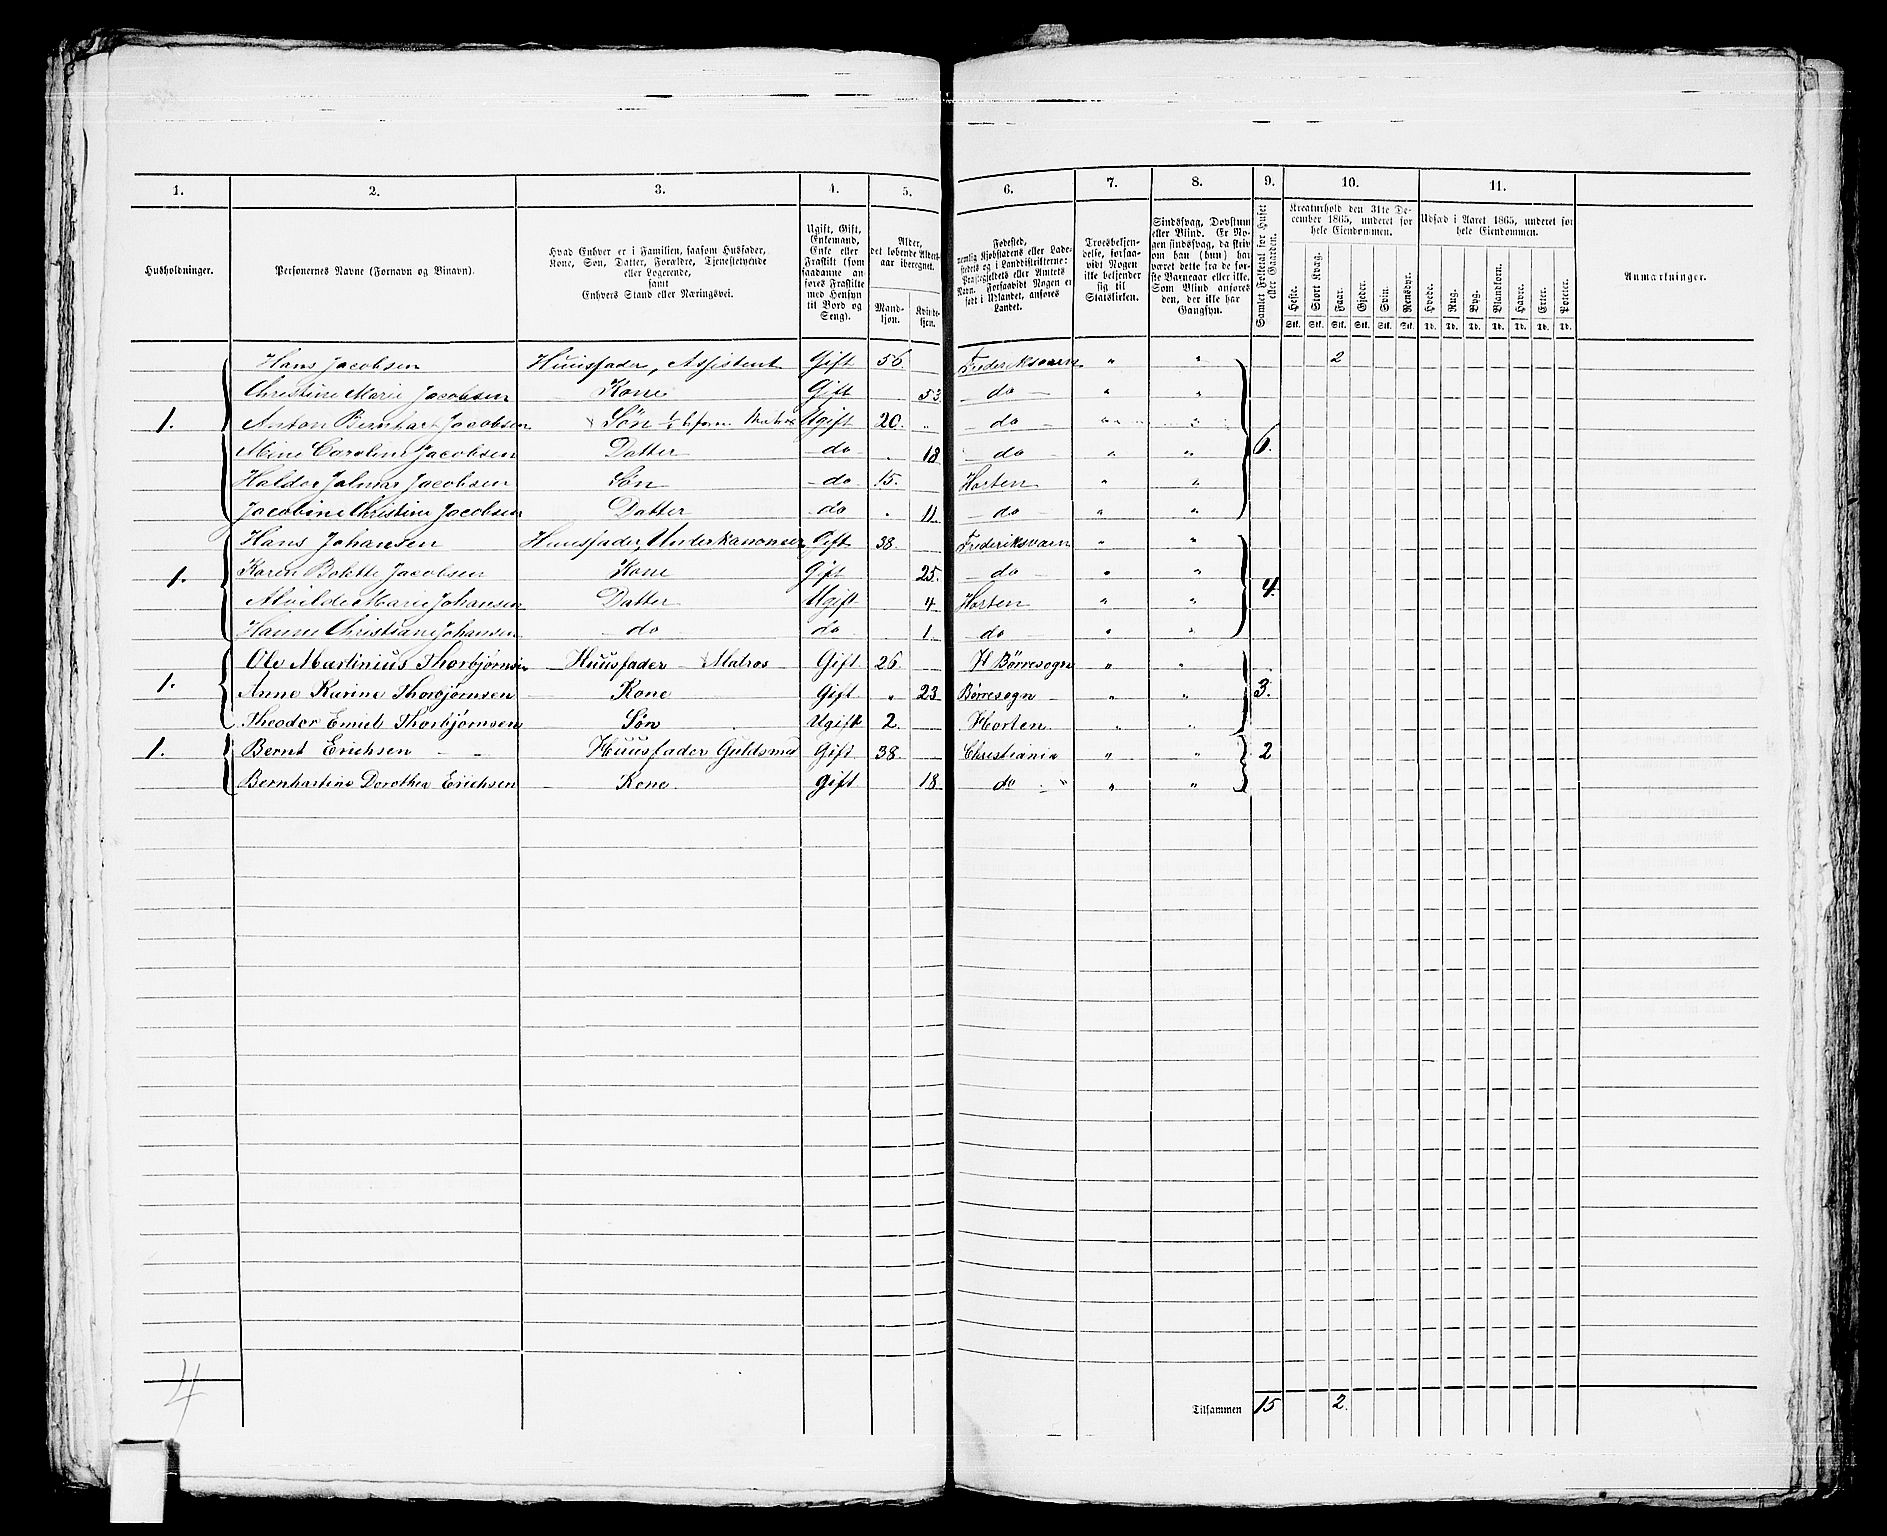 1. 2. 3. 4. 5. 6. 7. 8. 9. 10. 11.
Husholdninger.
Personernes Navne (Fornavn og Binavn).
Hvad Enhver er i Familien, saasom Husfader,
Kone, Søn, Datter, Forældre, Tjenestetyende
eller Logerende,
samt
Enhvers Stand eller Næringsvei.
Ugift, Gift,
Enkemand,
Enke eller
Fraskilt (som
saadanne an-
føres Fraskilte
med Hensyn
til Bord og
Seng).
Alder,
det løbende Alders-
aar iberegnet.
Mand-
kjøn.
Kvinde-
kjøn.
Fødested,
nemlig Kjøbstadens eller Lade-
stedets og i Landdistrikterne:
Præstegjældets eller Amtets
Navn. Forsaavidt Nogen er
født i Udlandet, anføres
Landet.
Troesbekjen-
delse, forsaa-
vidt Nogen
ikke bekjender
sig til
Statskirken.
Sindssvag, Døvstum
eller Blind. Er No-
gen sindssvag, da skriv
om han (hun) har
været dette fra de før-
ste Barneaar eller ikke.
Som Blind anføres
den, der ikke har
Gangsyn.
Samlet Folketal for Huset
eller Gaarden.
Kreaturhold den 31te De-
cember 1865, underet for
hele Eiendommen.
Heste. Stort Kvæg. Faar. Gjeder. Svin. Rensdyr.
Stk. Stk. Stk. Stk. Stk. Stk.
Udsæd i Aaret 1865, underet for
hele Eiendommen.
Hvede. Rug. Byg. Blandkorn. Havre. Erter. Poteter.
Td. Td. Td. Td. Td. Td. Td.
Anmærkninger.
Hans Jacobsen Huusfader, Assistent Gift 56. Frederiksværn " " 2
Christine Marie Jacobsen Kone Gift 53. do " "
1. Anton Bernhart Jacobsen Søn Ugift 20. " do " " 6.
Mine Caroline Jacobsen Datter do " 18 do " "
Haldor Jalmar Jacobsen Søn do 15. Horten " "
Jacobine Christine Jacobsen Datter do " 11 do " "
Hans Johansen Huusfader, Underkanoneer Gift 38. Frederiksværn " "
1. Karen Bolette Jacobsen Kone Gift 25. do " "
Alvilde Marie Johansen Datter Ugift 4 Horten " " 4.
Hanne Christiane Johansen do do 1 do " "
Ole Martinius Thorbjørnsen Huusfader Matros Gift 26 H Børresogn " "
1. Anne Karine Thorbjørnsen Kone Gift " 23 Børresogn " " 3.
Theodor Emiel Thorbjørnsen Søn Ugift 2. Horten " "
1. Bernt Erichsen Huusfader Guldsmed Gift 38. Christiania " " 2
Bernhartine Dorothea Erichsen Kone. Gift 18 do " "
4
Tilsammen 15 2.